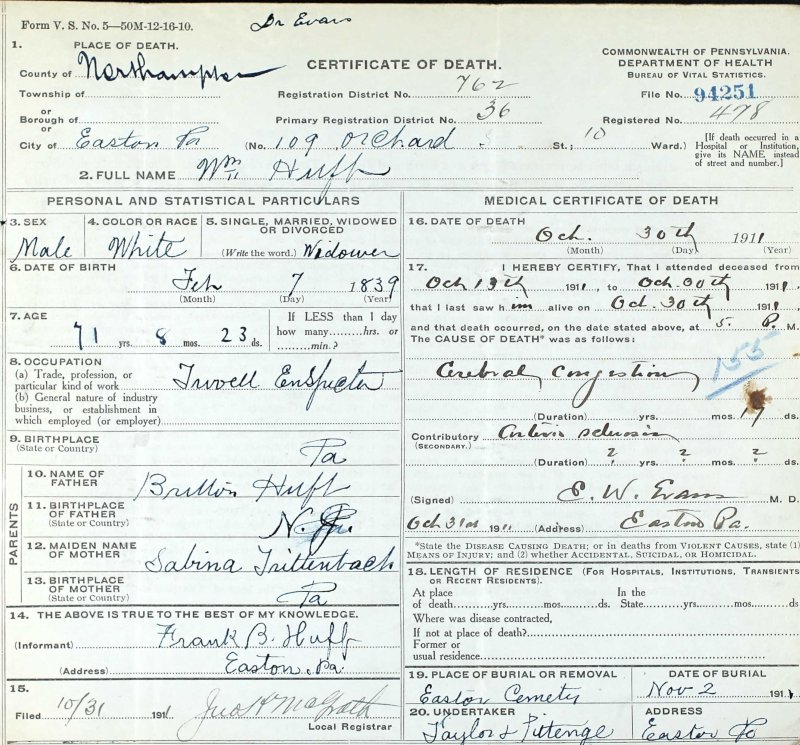 Form V. S. No. 5—50M-12-16-10.
Dr Evans
1. PLACE OF DEATH.
County of Northampton
Township of
or
Borough of
or
City of Easton Pa (No. 109 Orchard St.; 10 Ward.)
CERTIFICATE OF DEATH.
Registration District No. 762
Primary Registration District No. 36
COMMONWEALTH OF PENNSYLVANIA.
DEPARTMENT OF HEALTH
BUREAU OF VITAL STATISTICS.
File No. 94251
Registered No. 478
[If death occurred in a
Hospital or Institution,
give its NAME instead
of street and number.]
2. FULL NAME Wm Huff
PERSONAL AND STATISTICAL PARTICULARS
3. SEX
Male
4. COLOR OR RACE
White
5. SINGLE, MARRIED, WIDOWED
OR DIVORCED
(Write the word.) Widower
6. DATE OF BIRTH
Feb 7 1839
(Month) (Day) (Year)
7. AGE
71 yrs. 8 mos. 23 ds.
If LESS than 1 day
how many hrs. or
min.?
8. OCCUPATION
(a) Trade, profession, or
particular kind of work
(b) General nature of industry
business, or establishment in
which employed (or employer)
Enspecter
9. BIRTHPLACE
(State or Country)
Pa
PARENTS
10. NAME OF
FATHER
Britton Huff
11. BIRTHPLACE
OF FATHER
(State or Country)
N.
12. MAIDEN NAME
OF MOTHER
Sabina Trittenbach
13. BIRTHPLACE
OF MOTHER
(State or Country)
Pa
14. THE ABOVE IS TRUE TO THE BEST OF MY KNOWLEDGE.
(Informant) Frank B. Huff
(Address) Easton, Pa.
15.
Filed 10/31 1911 Jno H McGrath
Local Registrar
MEDICAL CERTIFICATE OF DEATH
16. DATE OF DEATH
Oct. 30th 1911
(Month) (Day) (Year)
17. I HEREBY CERTIFY, That I attended deceased from
Oct 13th 1911, to Oct 30th 1911,
that I last saw him alive on Oct. 30th 1911,
and that death occurred, on the date stated above, at 5. P. M.
The CAUSE OF DEATH* was as follows:
155
Cerebral Congestion
(Duration) yrs. mos. 17 ds.
Contributory Arterio sclerosis
(SECONDARY.)
(Duration) ? yrs. ? mos. ? ds.
(Signed) E. W. Evans M. D.
Oct 31st 1911 (Address) Easton Pa.
*State the DISEASE CAUSING DEATH; or in deaths from VIOLENT CAUSES, state (1)
MEANS OF INJURY; and (2) whether ACCIDENTAL, SUICIDAL, OR HOMICIDAL.
18. LENGTH OF RESIDENCE (FOR HOSPITALS, INSTITUTIONS, TRANSIENTS
OR RECENT RESIDENTS).
At place
of death yrs. mos. ds.
In the
State yrs. mos. ds
Where was disease contracted,
If not at place of death?
Former or
usual residence
19. PLACE OF BURIAL OR REMOVAL
Easton Cemety
DATE OF BURIAL
Nov 2 1911
20. UNDERTAKER
Taylor & Pittenge
ADDRESS
Easton Pa